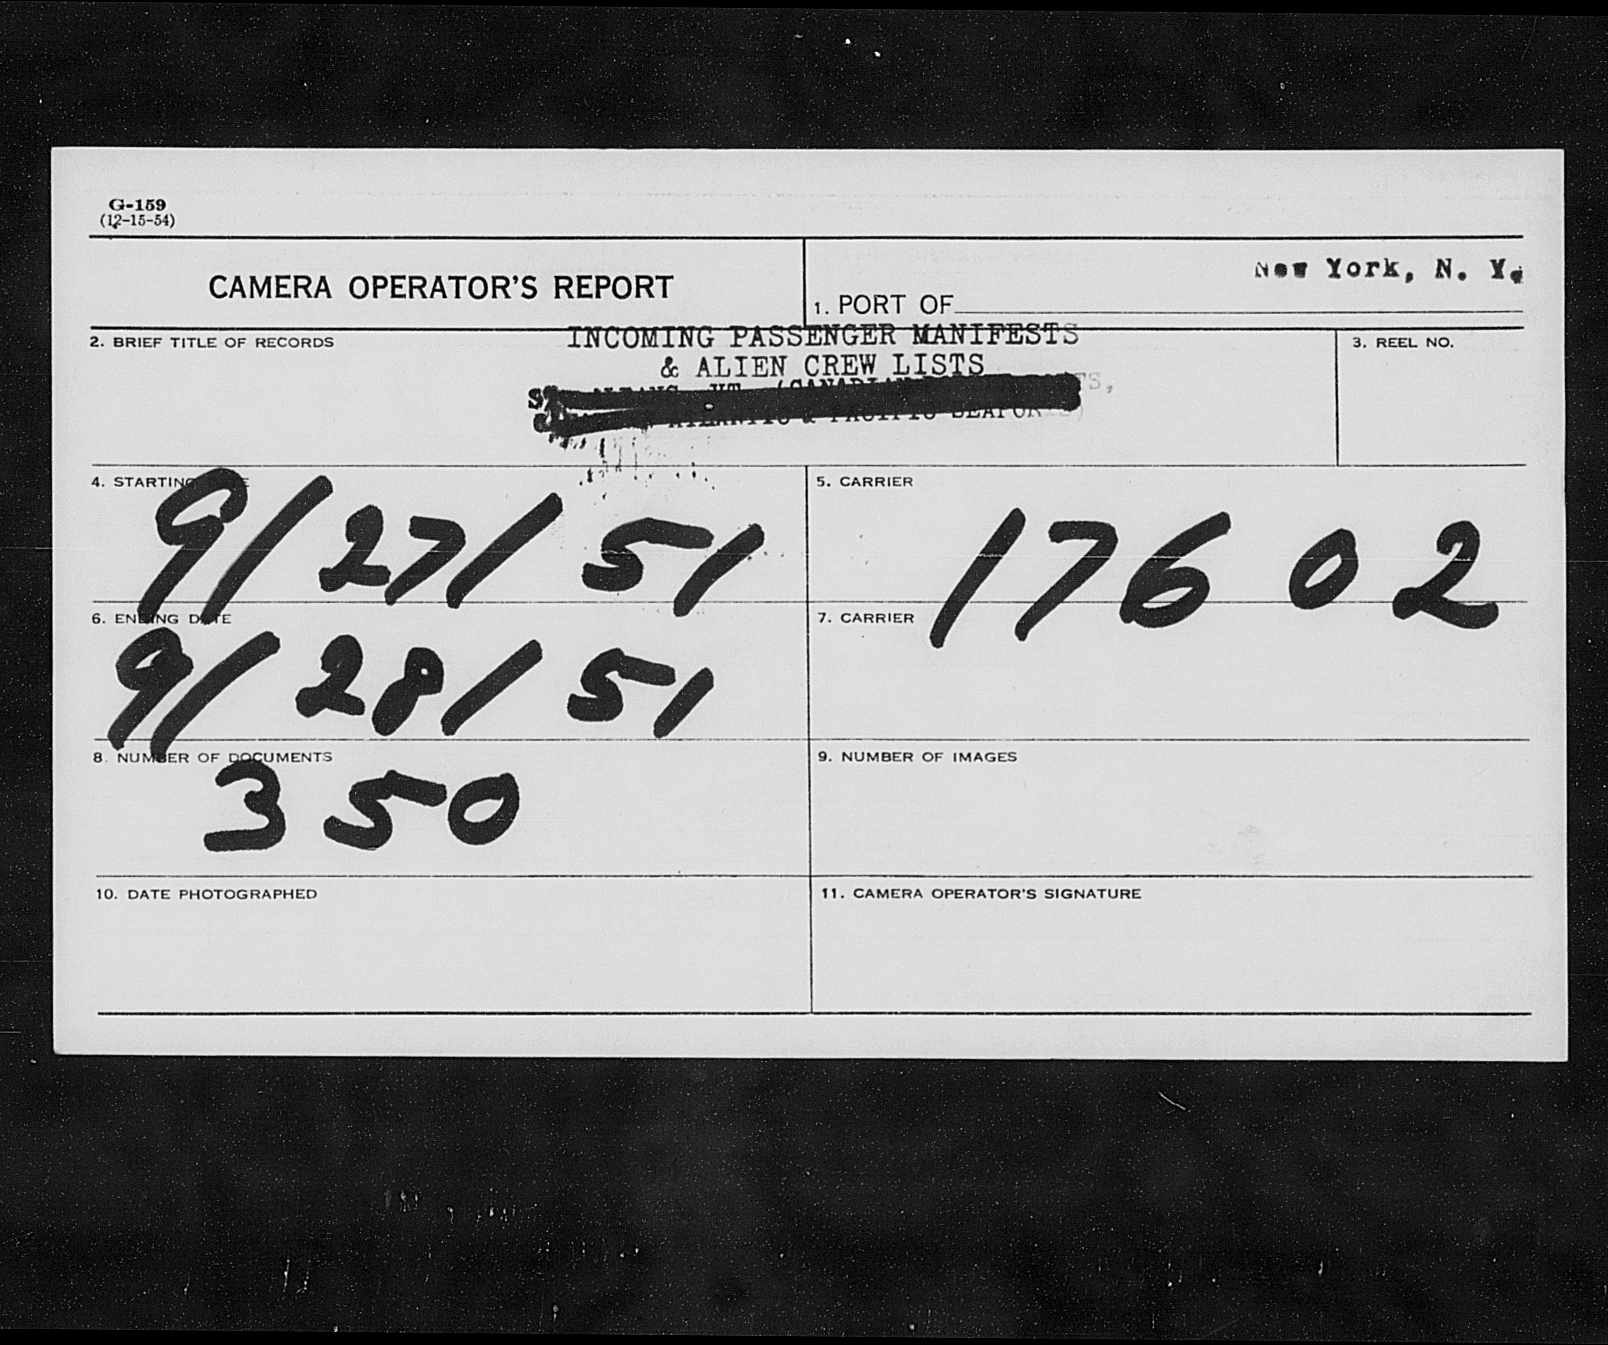 G-159
(12-15-54)
CAMERA OPERATOR'S REPORT
New York, N. Y.
1. PORT OF
2. BRIEF TITLE OF RECORDS
INCOMING PASSENGER MANIFESTS
& ALIEN CREW LISTS
3. REEL NO.
4. STARTING
9/27/51
5. CARRIER
17602
6. ENDING DATE
9/28/51
7. CARRIER
8. NUMBER OF DOCUMENTS
350
9. NUMBER OF IMAGES
10. DATE PHOTOGRAPHED
11. CAMERA OPERATOR'S SIGNATURE